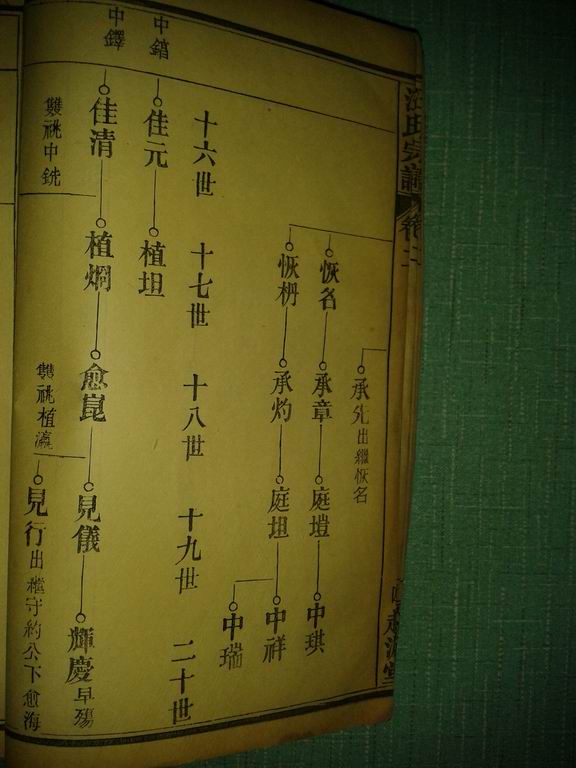 汪氏宗譜
卷二
承先出繼恢名
恢名
承章
庭塏
中琪
恢枬
承灼
庭坦
中祥
中瑞
十六世
十七世
十八世
十九世
二十世
中鎔
佳元
植坦
中鐸
佳清
植烱
愈崑
見儀
輝慶早殤
雙祧中銑
雙祧植瀛
見行出繼守約公下愈海